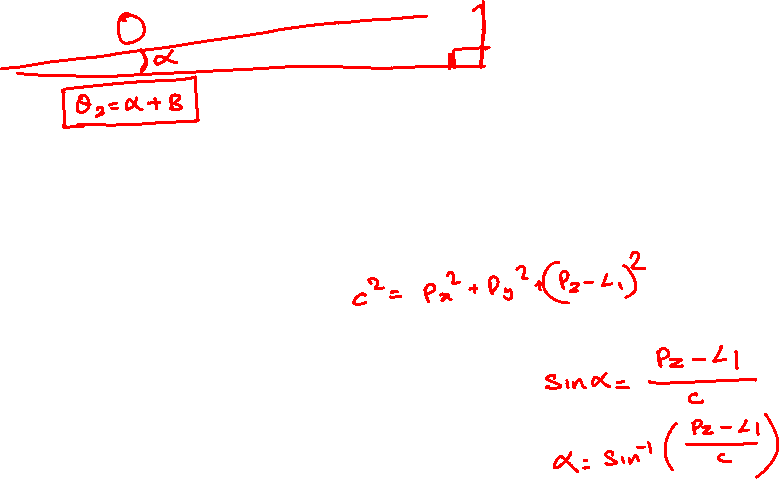 α
θ₂=α+B
c²= Px²+Py²+(Pz-L₁)²
Sinα= \frac{Pz-L1}{c}
α= Sin⁻¹(\frac{Pz-L1}{c})